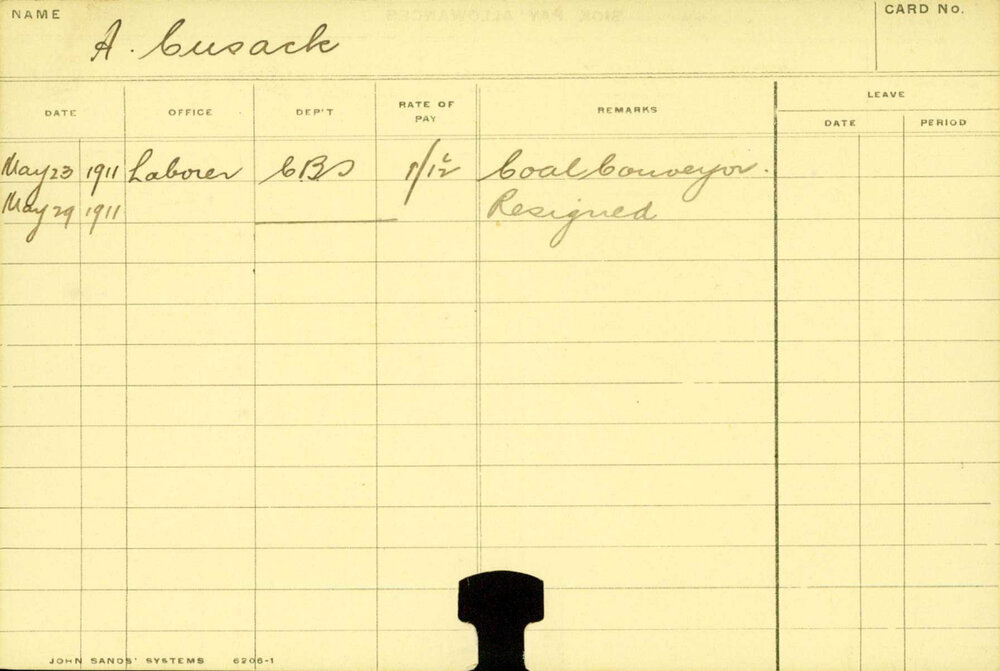 NAME
A. Cusack
CARD No.
DATE OFFICE DEP'T RATE OF PAY REMARKS LEAVE
DATE PERIOD
May 23 1911 Laborer Coal Conveyor.
May 29 1911 Resigned
JOHN SANDS' SYSTEMS 6206-1